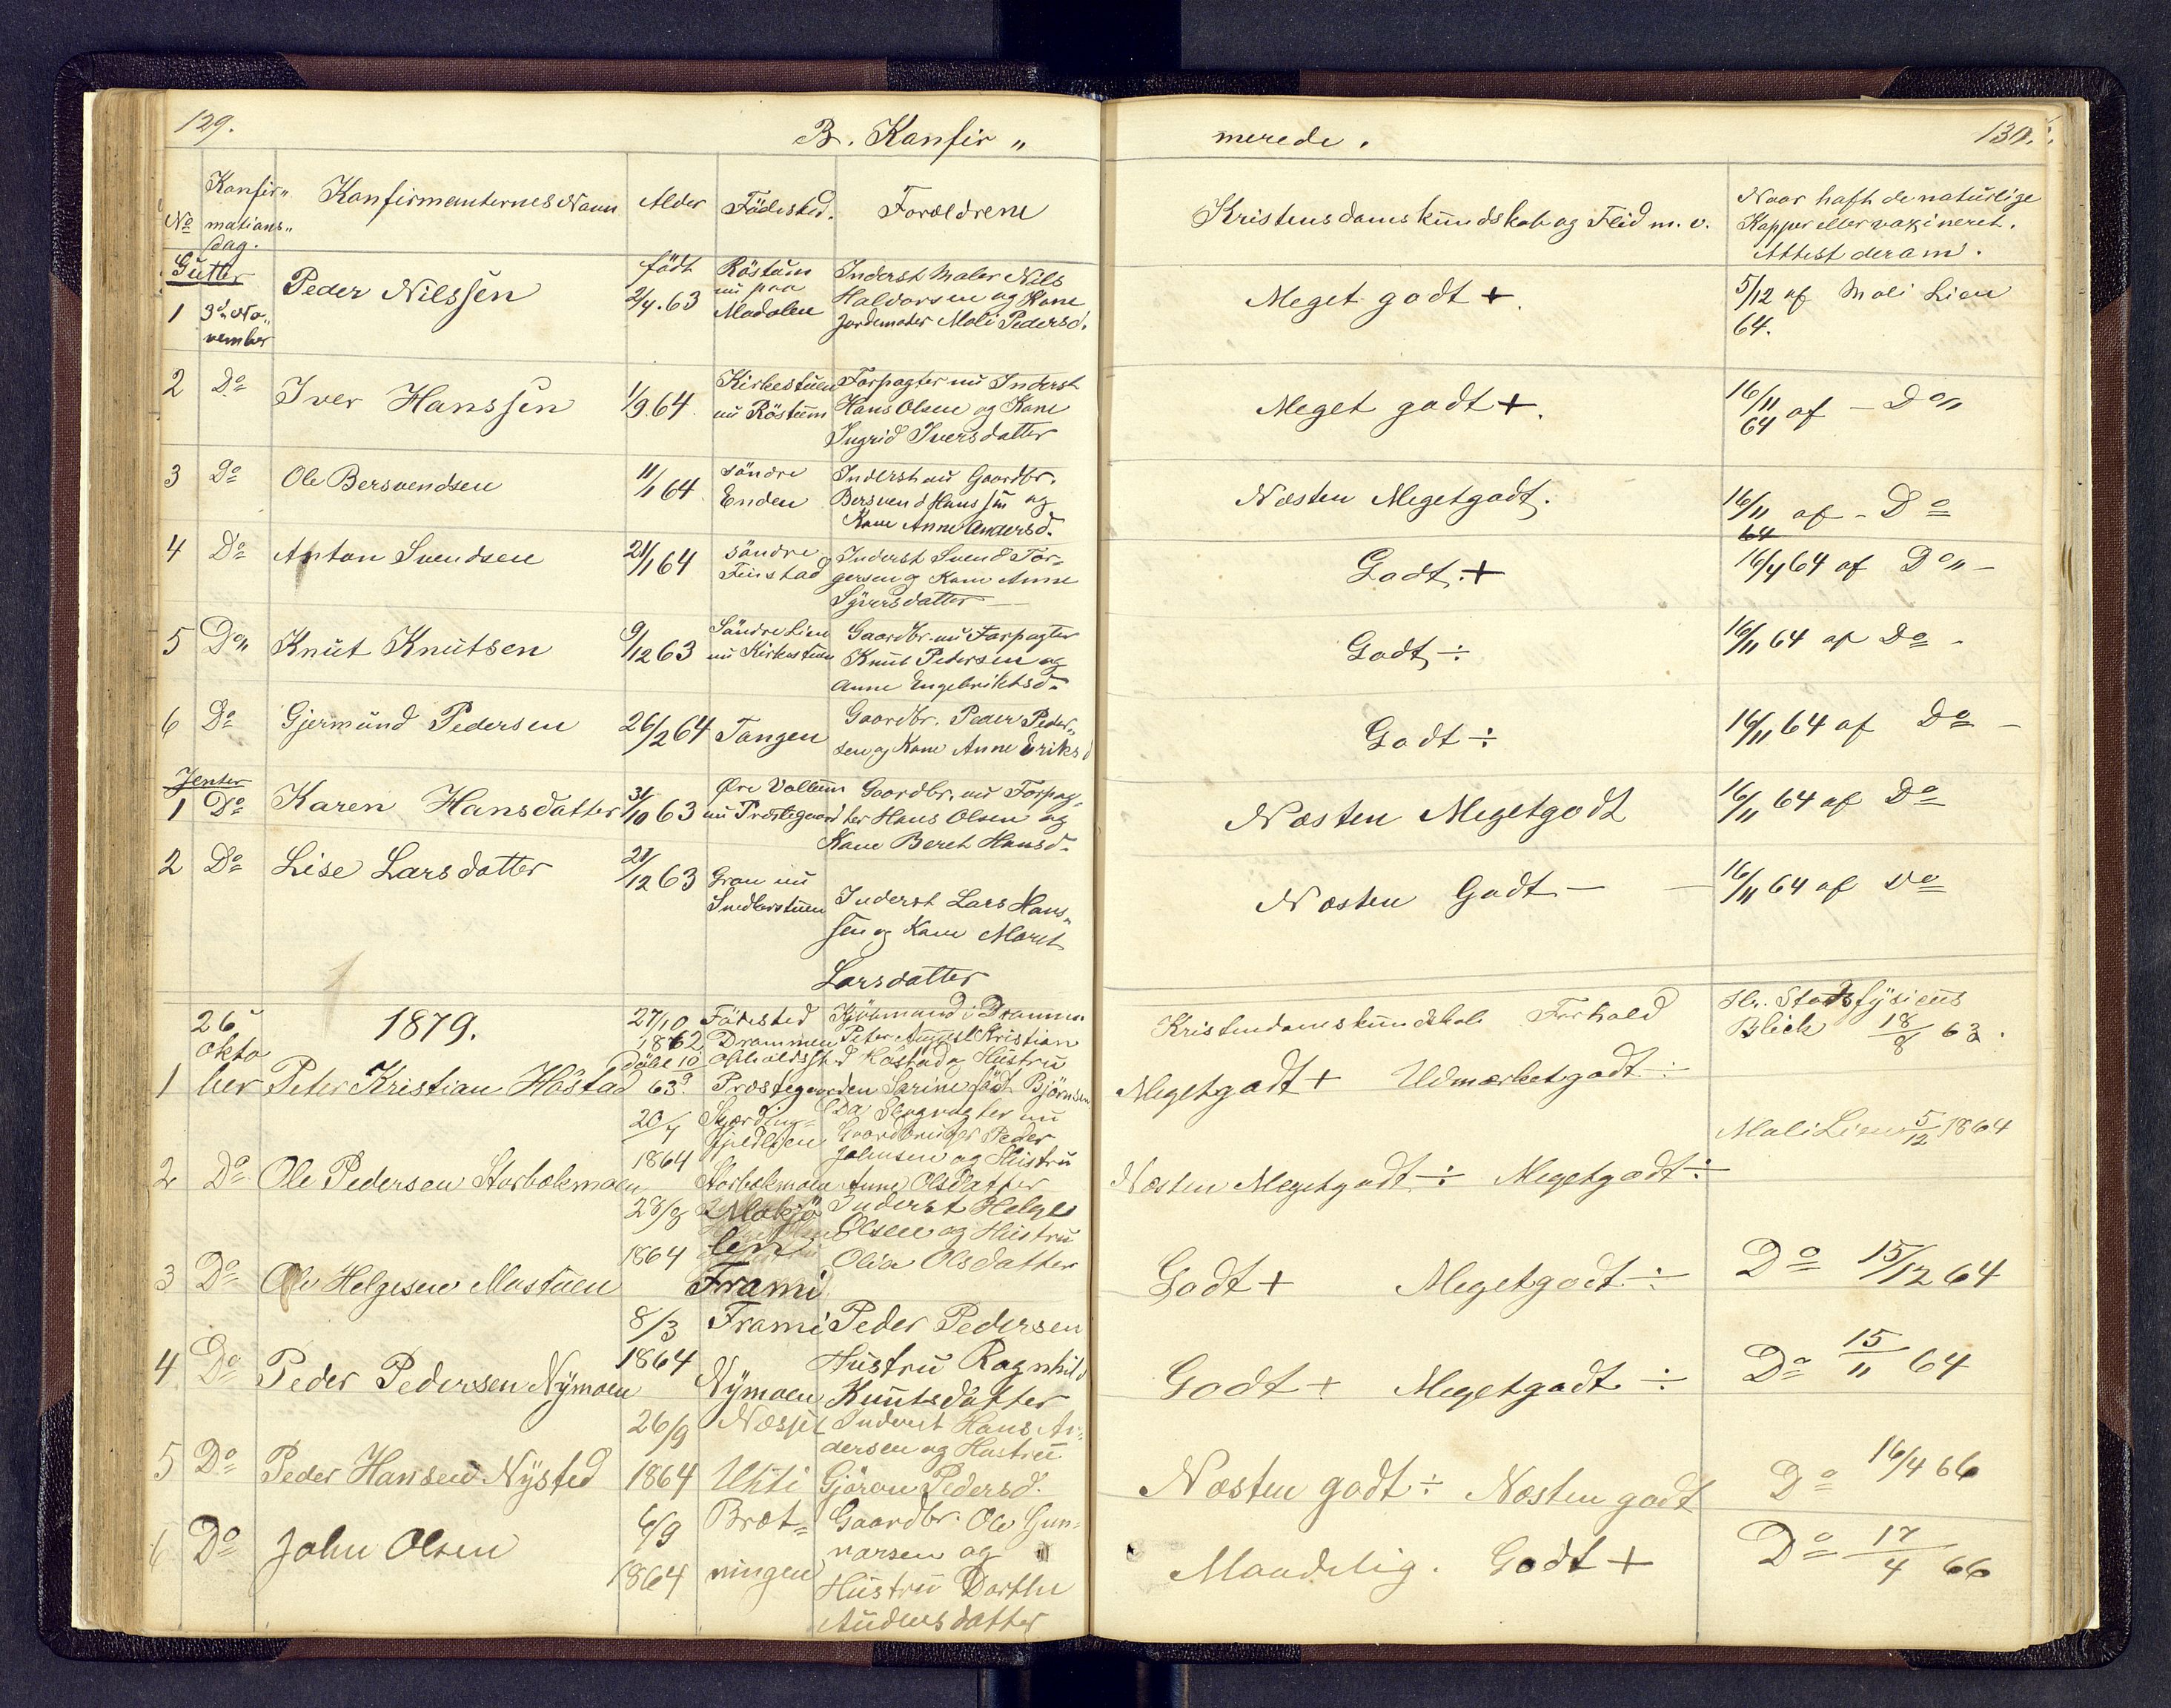 129.
B. Konfir„
merede.
130.
No
Konfir„
mations„
dag.
Konfirmanternes Navn
Alder
Födested.
Forældrene
Kristendomskundskab og Flid m. v.
Naar haft de naturlige
Kopper eller vaxineret.
Attest derom.
Gutter
1 3d No„
vember
Peder Nilssen
födt
2/4. 63
Röstum
nu paa
Modolen
Inderst Maler Nils
Haldorsen og Kone
Jordemoder Mali Pedersd.
Meget godt +.
5/12 af Mali Lien
64.
2 Do Iver Hanssen
1/9. 64.
Kirkestuen
nu Röstum
Forpagter nu Inderst
Hans Olsen og Kone
Ingrid Iversdatter
Meget godt +.
16/11
64 af - Do„
3 Do Ole Bersvendsen
11/1 64.
söndre
Enden
Inderst nu Gaardbr.
Bersvend Hanssen og
Kone Anne Andersd.
Næsten Megetgodt.
16/11 af - Do
64
4 Do Anton Svendsen
21/1 64
söndre
Finstad
Inderst Svend Tor-
gersen og Kone Anne
Syversdatter
Godt. +
16/4 64 af Do„ -
5 Do„ Knut Knutsen
9/12 63
Söndre Lien
nu Kirkestuen
Gaardbr. nu Forpagter
Knut Petersen og
Anne Engebriktsd.
Godt, ÷
16/11 64 af Do -
6 Do Gjermund Pedersen
26/2 64 Tangen
Gaardbr. Peder Peder„
sen og Kone Anne Eriksd
Godt ÷
16/11 64 af Do -
Jenter
1 Do Karen Hansdatter
31/10 63
Øvre Vollum
nu Præstegaard
Gaardbr. nu Forpag„
ter Hans Olsen og
Kone Beret Hansd.
Næsten Megetgodt
16/11 64 af Do
2 Do Lise Larsdatter
21/12 63
Gran nu
Snedkerstuen
Inderst Lars Hans„
sen og Kone Marit
Larsdatter
Næsten Godt -
16/11 64 af Do
1879.
26
okto
ber
1 Peter Kristian Höstad
27/10
1862
Döbt 10
63.
Födested
Drammen
Opholdsst
Præstegaarden
Kjöbmand i Drammen
Peter August Kristian
Höstad og Hustru
Sarine födt Björnsen
Kristendomskundskab Forhold
Megetgodt + Udmærketgodt ÷
Hr. Stadsfysicus
Blich 18/8 63.
2 Do Ole Pedersen Storbækmoen
20/7
1864
Storbækmoen
Da Skogvogter nu
Gaardbruger Peder
Johnsen og Hustru
Anne Olsdatter
Næsten Megetgodt ÷ Megetgodt ÷
Mali Lien 5/12 1864
3 Do Ole Helgesen Mostuen
28/8
1864
len
Frami
Inderst Helge
Olsen og Hustru
Olia Olsdatter
Godt + Megetgodt ÷
Do 15/12 64
4 Do Peder Pedersen Nymoen
8/3
1864
Frami
Nymoen
Peder Pedersen
Hustru Ragnhild
Knutsdatter
Godt + Megetgodt ÷
Do 15/11 64
5 Do Peder Hansen Nysted
26/9
1864
Næsset
Uhti
Inderst Hans An-
dersen og Hustru
Gjöran Pedersd.
Næsten godt ÷ Næsten godt
Do 16/4 66
6 Do John Olsen
6/9
1864
Bræt-
ningen
Gaardbr. Ole Gun-
narsen og
Hustru Dorthe
Audensdatter
Maadelig. Godt +
Do 17/4 66